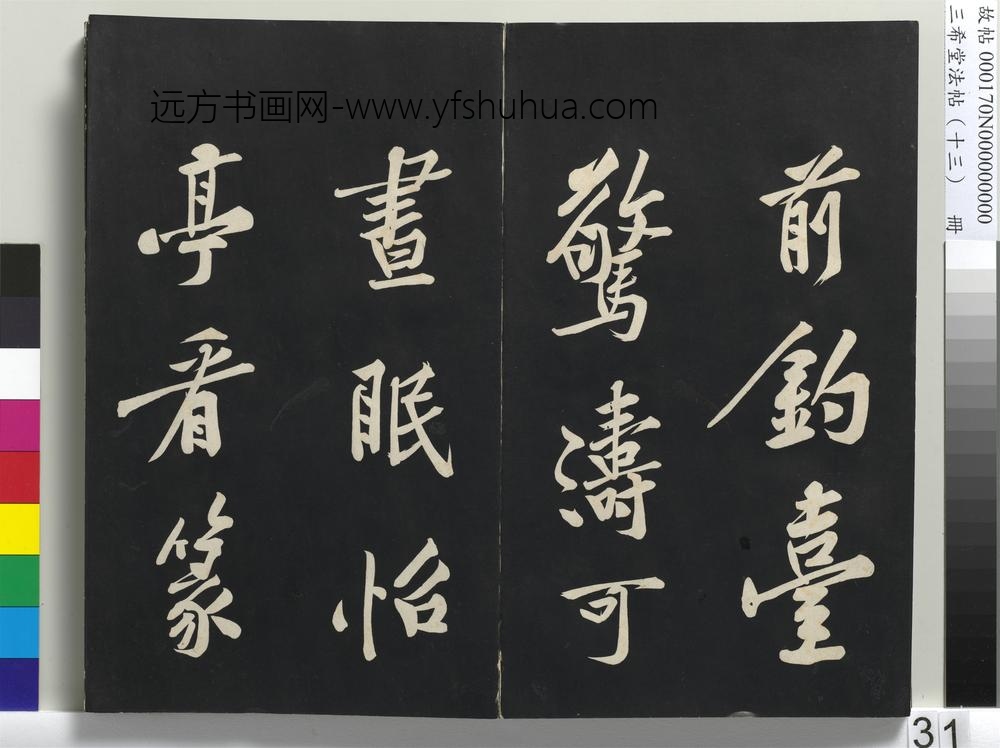 前釣臺
驚濤可
晝眠怡
亭看篆
远方书画网-www.yfshuhua.com
故帖 000170N000000000
三希堂法帖（十三） 冊
31